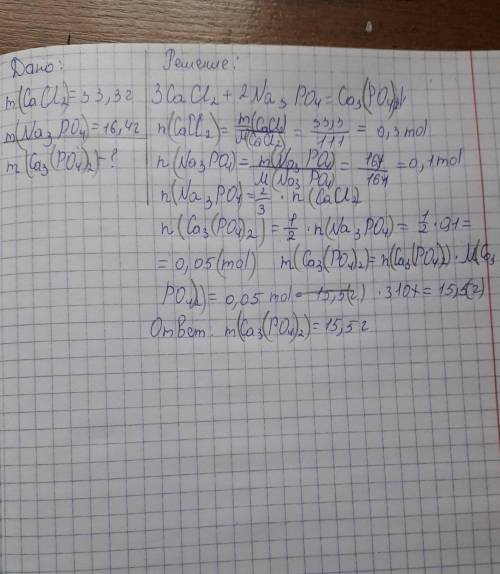 Дано:
m(CaCl2)=33,3г
m(Na3PO4)=16,4г
m(Ca3(PO4)2)-?
Решение:
3CaCl2+2Na3PO4=Ca3(PO4)2↓
n(CaCl2)=m(CaCl2)/M(CaCl2)=33,3/111=0,3mol
n(Na3PO4)=m(Na3PO4)/M(Na3PO4)=164/164=0,1mol
n(Na3PO4=2/3·n(CaCl2)
n(Ca3(PO4)2)=1/2·n(Na3PO4)=1/2·0,1=
=0,05(mol) m(Ca3(PO4)2)=n(Ca3(PO4)2)·M(Ca3
PO4)2)=0,05mol=15,5(г)·310г=15,5(г)
Ответ: m(Ca3(PO4)2)=15,5г